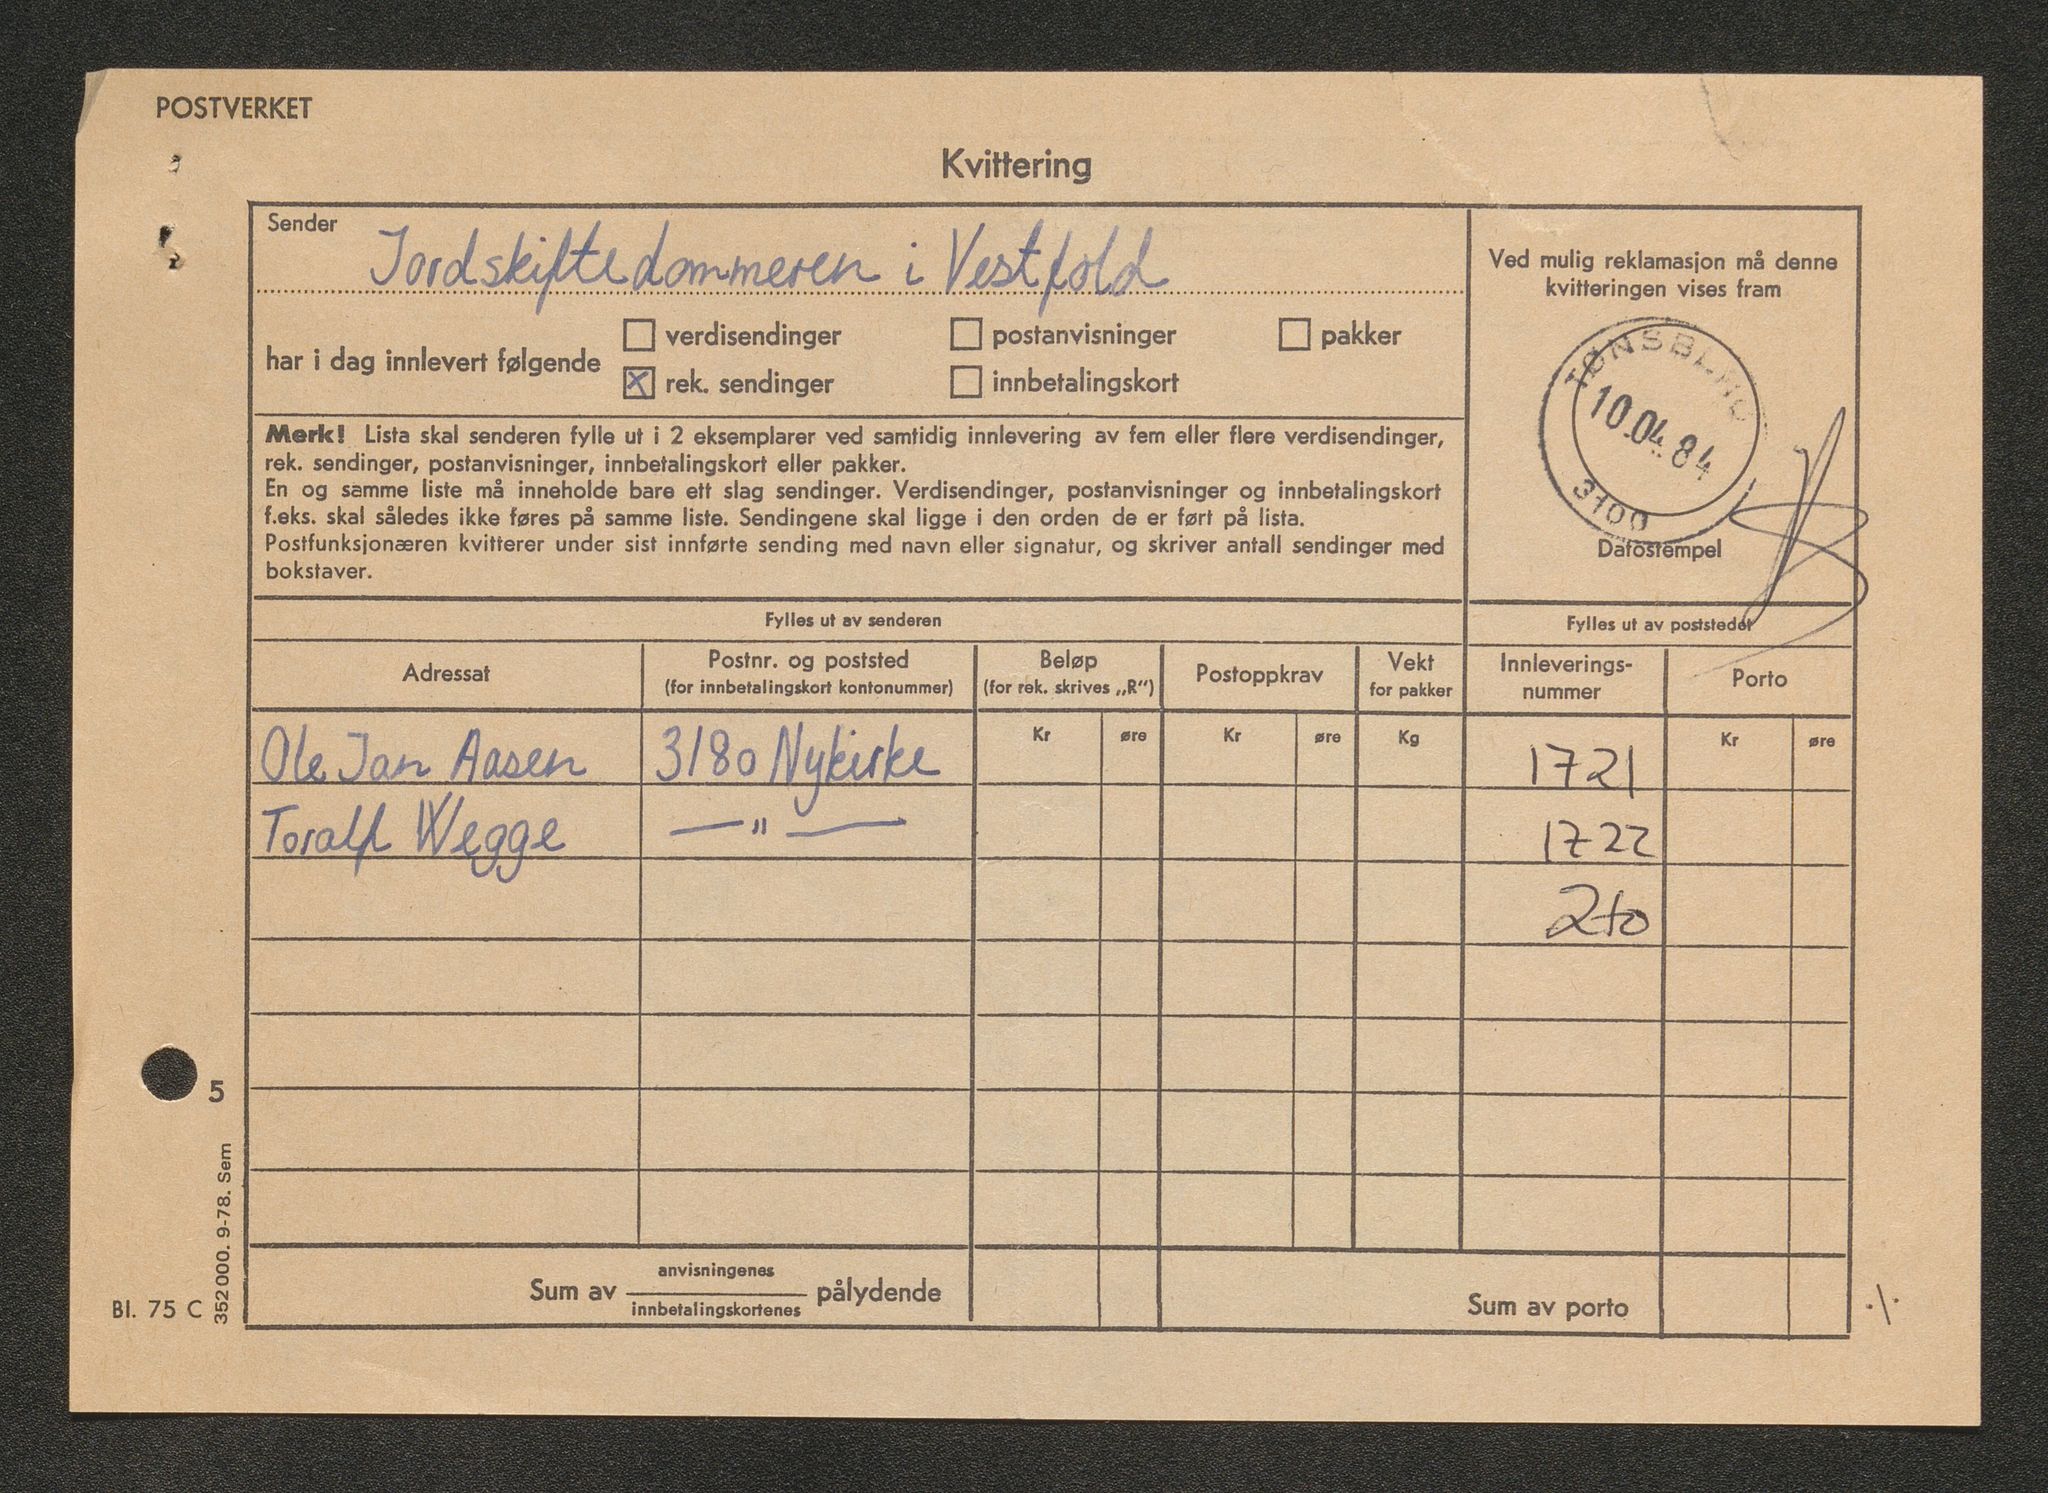 POSTVERKET
Kvittering
Sender
Jordskiftedommeren i Vestfold
har i dag innlevert følgende
verdisendinger
postanvisninger
pakker
x rek. sendinger
innbetalingskort
Merk! Lista skal senderen fylle ut i 2 eksemplarer ved samtidig innlevering av fem eller flere verdisendinger,
rek. sendinger, postanvisninger, innbetalingskort eller pakker.
En og samme liste må inneholde bare ett slag sendinger. Verdisendinger, postanvisninger og innbetalingskort
f.eks. skal således ikke føres på samme liste. Sendingene skal ligge i den orden de er ført på lista.
Postfunksjonæren kvitterer under sist innførte sending med navn eller signatur, og skriver antall sendinger med
bokstaver.
Ved mulig reklamasjon må denne
kvitteringen vises fram
TØNSBERG
10.04.84
3100
Datostempel
Fylles ut av senderen
Fylles ut av poststedet
Adressat
Postnr. og poststed
(for innbetalingskort kontonummer)
Beløp
(for rek. skrives „R")
Postoppkrav
Vekt
for pakker
Innleverings-
nummer
Porto
Kr øre Kr øre Kg Kr øre
Ole Jan Aasen 3180 Nykirke 1721
Toralf Wegge — " — 1722
2 to
Sum av anvisningenes
innbetalingskortenes pålydende
Sum av porto
·/·
5
352 000. 9-78. Sem
Bl. 75 C